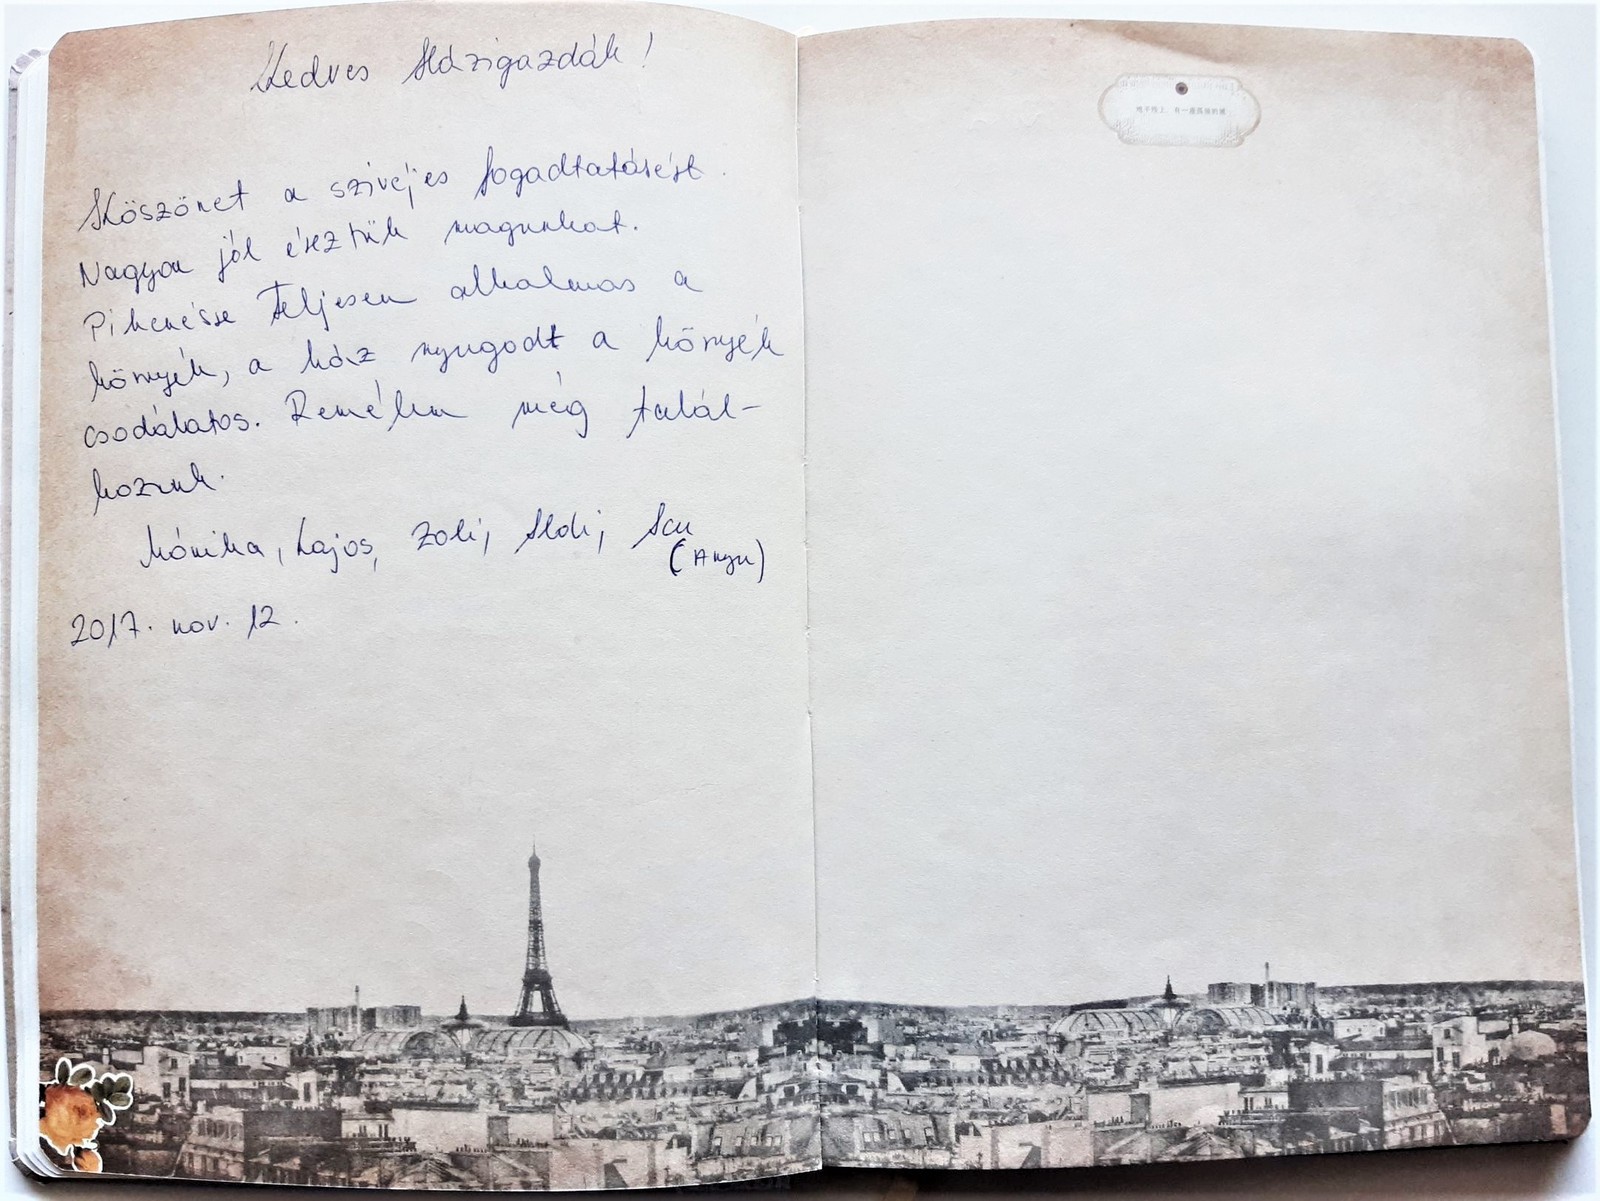 Kedves Házigazdák!
Köszönet a szivéjes fogadtatásért.
Nagyon jól éreztük magunkat.
Pihenésre teljesen alkalmas a
környék, a ház nyugodt a környék
csodálatos. Remélem még talál-
kozunk.
Mónika, Lajos, Zoli, Ildi,
(Anyu)
2017. nov. 12.